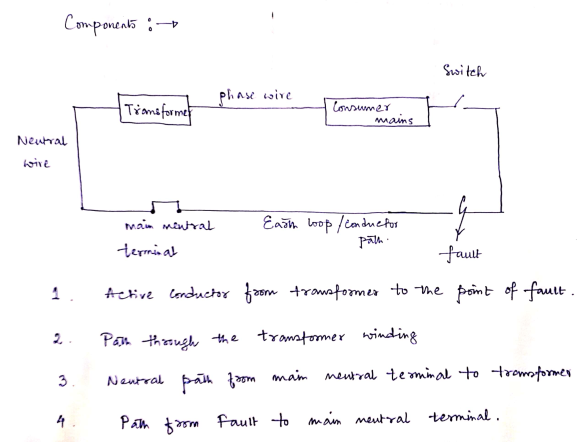 Components :→
Switch
phase wire
Transformer
Consumer
mains
Neutral
wire
main neutral
terminal
Earth loop/conductor
path.
fault
1. Active conductor from transformer to the point of fault.
2. Path through the transformer winding
3. Neutral path from main neutral terminal to transformer
4. Path from Fault to main neutral terminal.